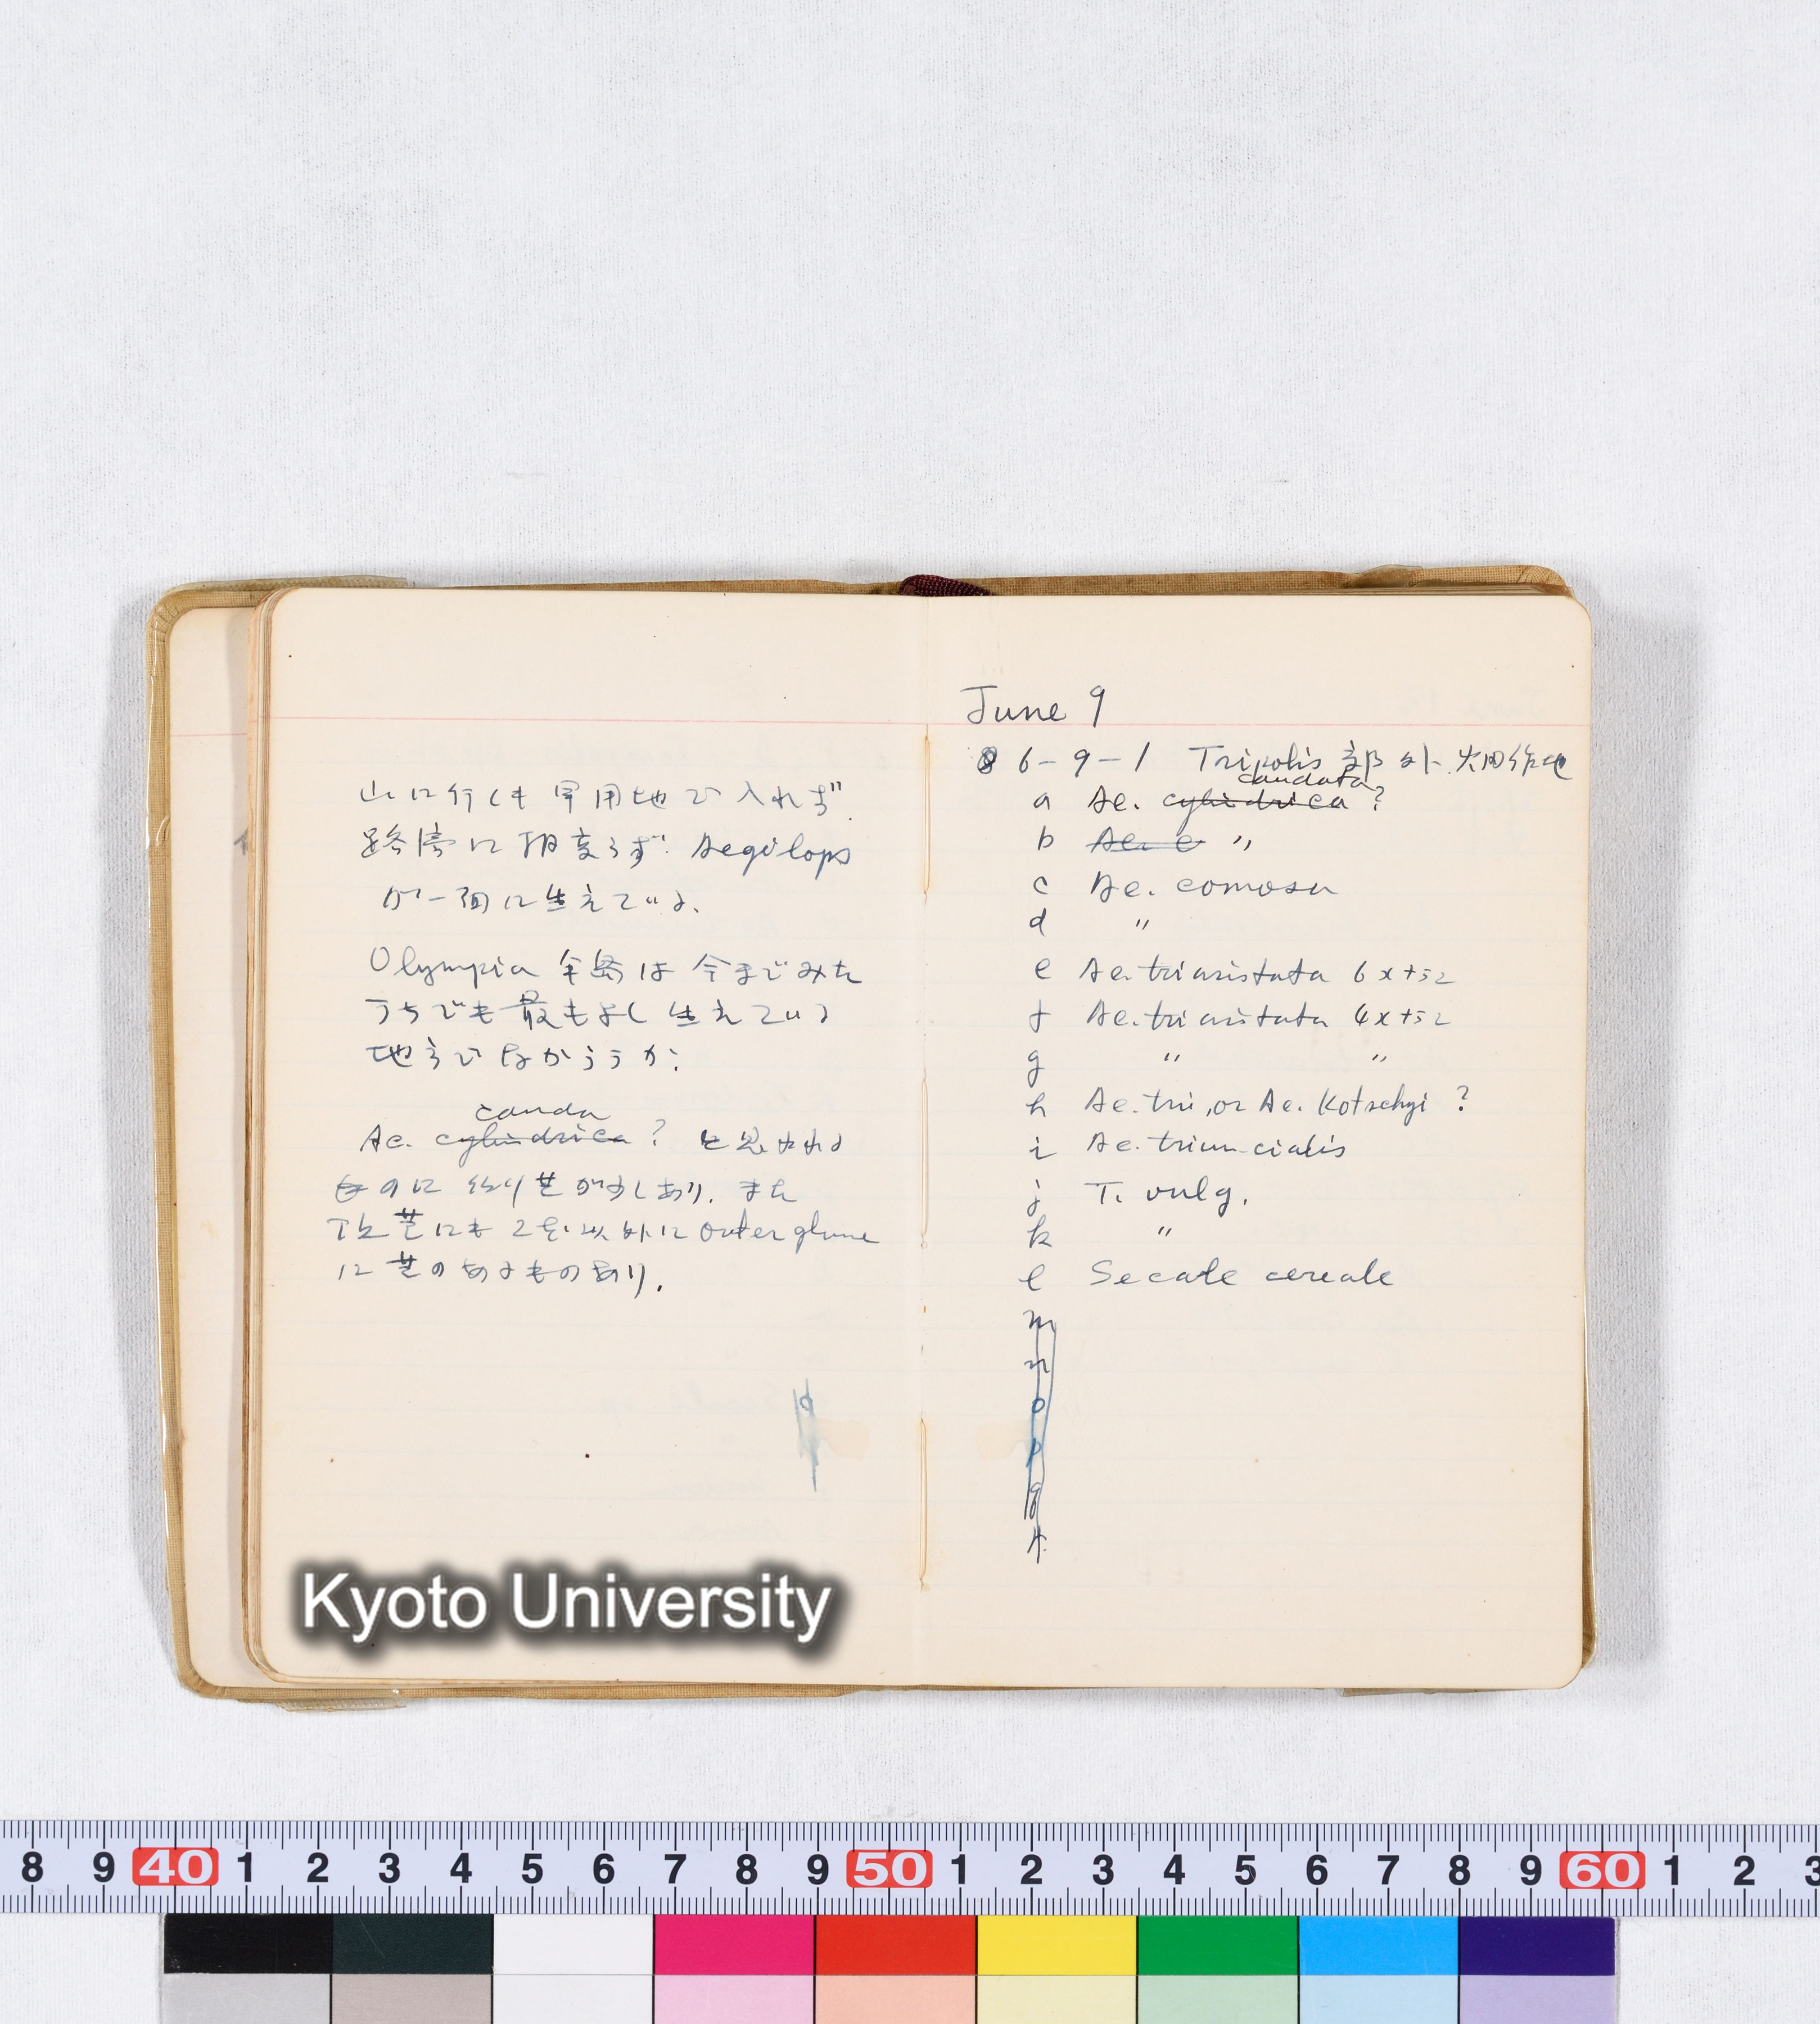 山に行くも軍用地で入れず.
路傍に相変らず Aegilops
が一面に生えている.
Olympia 半島は今までみた
うちでも最もよく生えている
地方でなかろうか.
cauda
Ae. cylindrica ? と思われる
ものに 芒が少しあり. また
頂芒にも 2 以外に outer glume
に芒のあるものあり.
June 9
6-9-1 Tripolis 郊外.
caudata
a Ae. cylindrica ?
b Ae. c 〃
c Ae. comosa
d 〃
e Ae. triaristata 6x+52
f Ae. triaristata 4x+52
g 〃 〃
h Ae. tri, or Ae. Kotschyi ?
i Ae. triuncialis
j T. vulg.
k 〃
l Secale cereale
m
n
o
p
q
r
Kyoto University
8 9 40 1 2 3 4 5 6 7 8 9 50 1 2 3 4 5 6 7 8 9 60 1 2 3